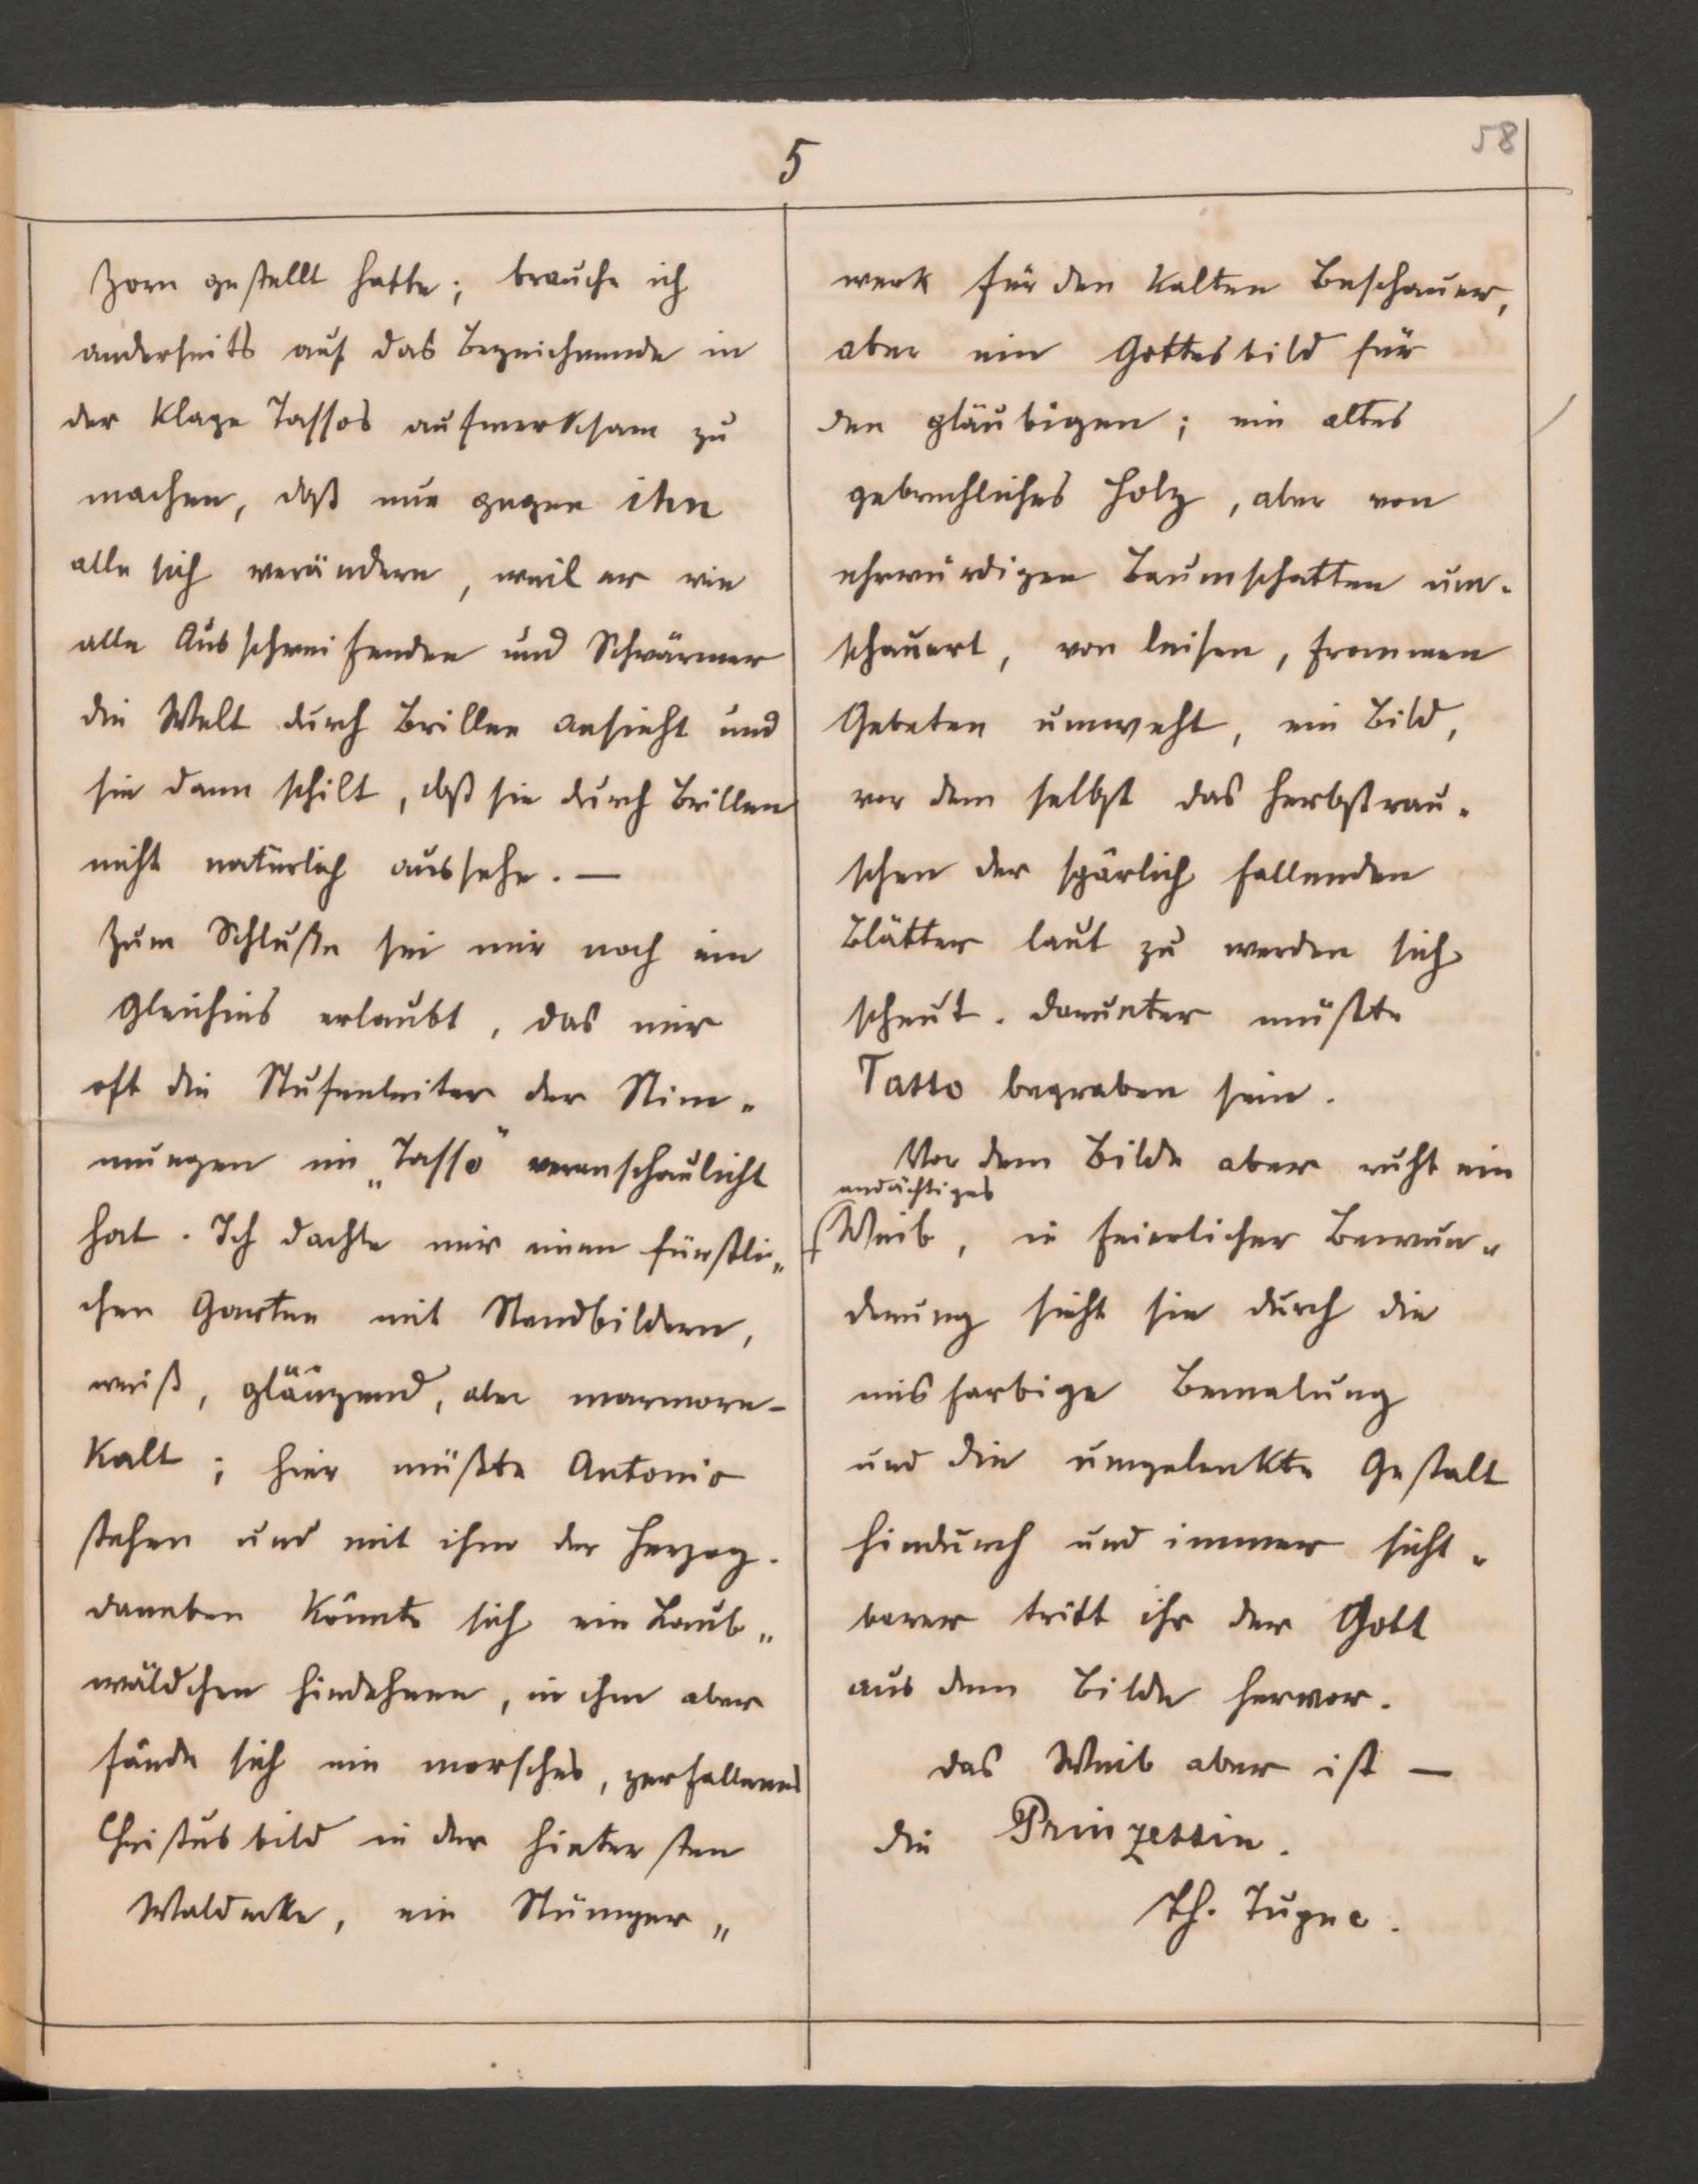 58
5
Zorn gestellt hatte; brauche ich
anderseits auf das Bezeichnende in
der Klage Tassos aufmerksam zu
machen, daß nur gegen ihn
alle sich verändern, weil er wie
alle Ausschweifenden und Schwärmer
die Welt durch Brillen ansieht und
sie dann schilt, daß sie durch Brillen
nicht natürlich aussehe. —
Zum Schluße sei mir noch ein
Gleichnis erlaubt, das mir
oft die Stufenleiter der Stim„
mungen im „Tasso" veranschaulicht
hat. Ich dachte mir einen fürstli„
chen Garten mit Standbildern,
weiß, glänzend, aber marmorn-
kalt; hier müßte Antonio
stehen und mit ihm der Herzog.
daneben könnte sich ein Laub„
wäldchen hindehnen, in ihm aber
fände sich ein morsches, zerfallenes
Christusbild in der hintersten
Waldecke, ein Stümper„
werk für den kalten Beschauer,
aber ein Gottesbild für
den gläubigen; ein altes
gebrechliches Holz, aber von
ehrwürdigen Baumschatten um-
schauert, von leisen, frommen
Gebeten umweht, ein Bild,
vor dem selbst das Herbstrau-
schen der spärlich fallenden
Blätter laut zu werden sich
scheut. darunter müßte
Tasso begraben sein.
Vor dem Bilde aber ruht ein
andächtiges
Weib, in feierlicher Bewun„
derung sieht sie durch die
misfarbige Bemalung
und die ungelenkte Gestalt
hindurch und immer sicht„
barer tritt ihr der Gott
aus dem Bilde hervor.
das Weib aber ist —
die Prinzessin.